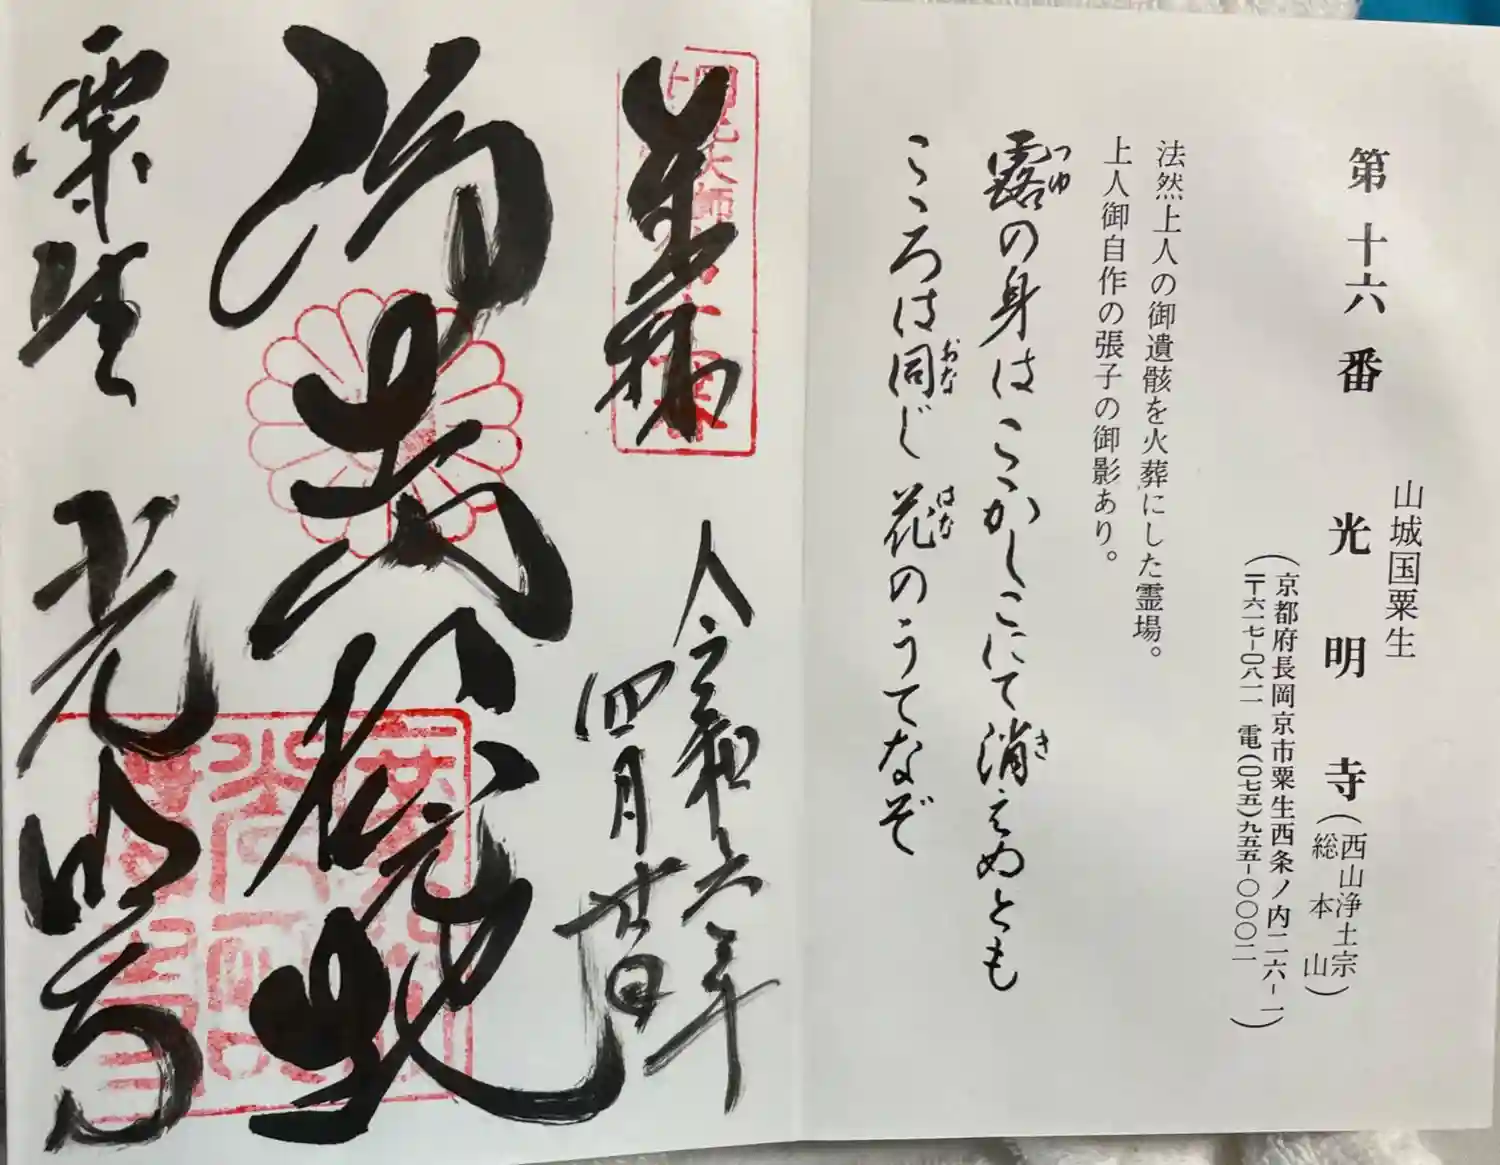 第十六番
山城国粟生
光明寺(西山浄土宗
総本山)
(京都府長岡京市粟生西条ノ内二六-一
〒六一七-〇八一一 電(〇七五)九五五-〇〇〇二)
法然上人の御遺骸を火葬にした霊場。
上人御自作の張子の御影あり。
露の身はここかしこにて消えぬとも
つゆ
き
こころは同じ花のうてなぞ
おな
はな
奉拜
令和六年
四月廿日
粟生
光明寺